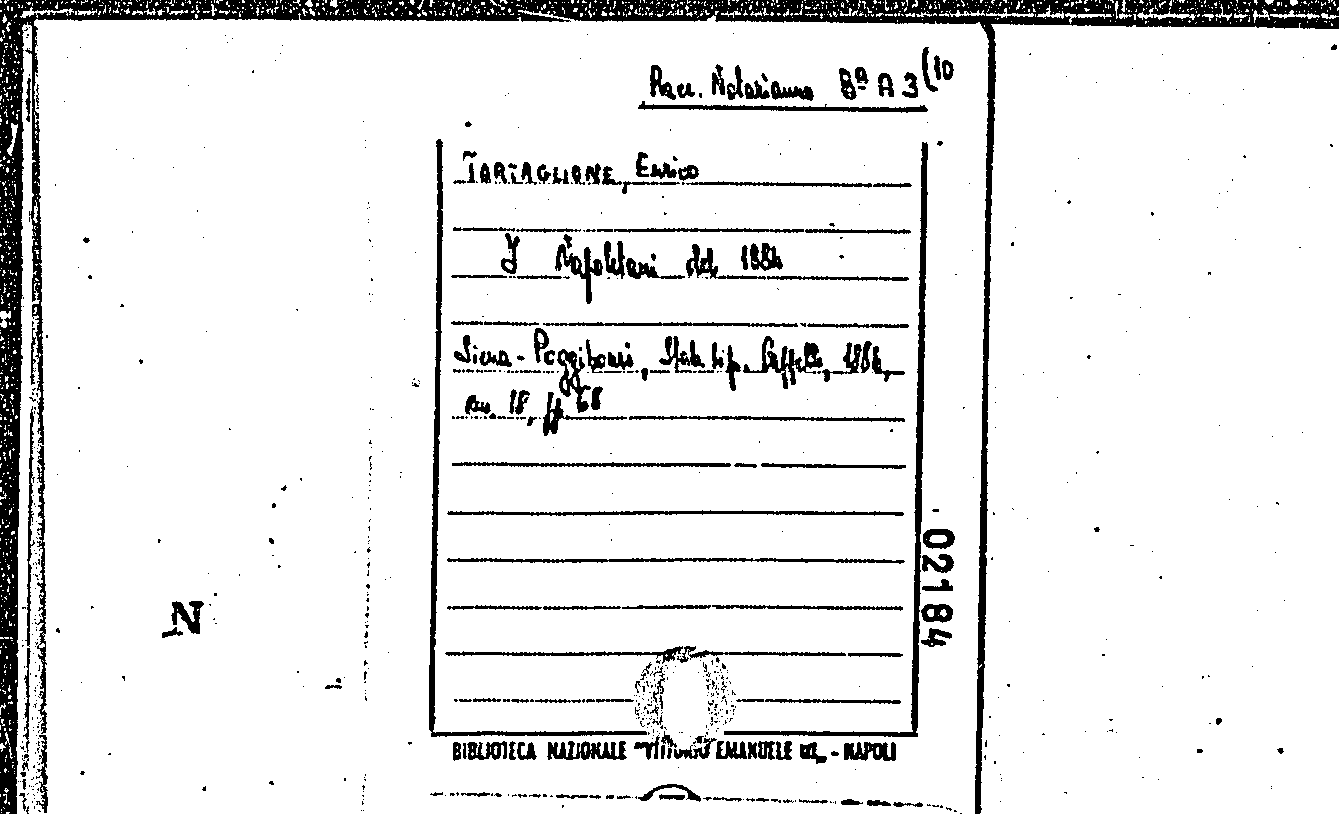 Racc. Notarianni 8ª A 3 (10
TARTAGLIONE, Enrico
I Napoletani del 1884
Siena - Poggibonsi, Stab. tip. Cappelli, 1884,
in 18, pp 68
02184
N
BIBLIOTECA NAZIONALE "VITTORIO EMANUELE III" - NAPOLI